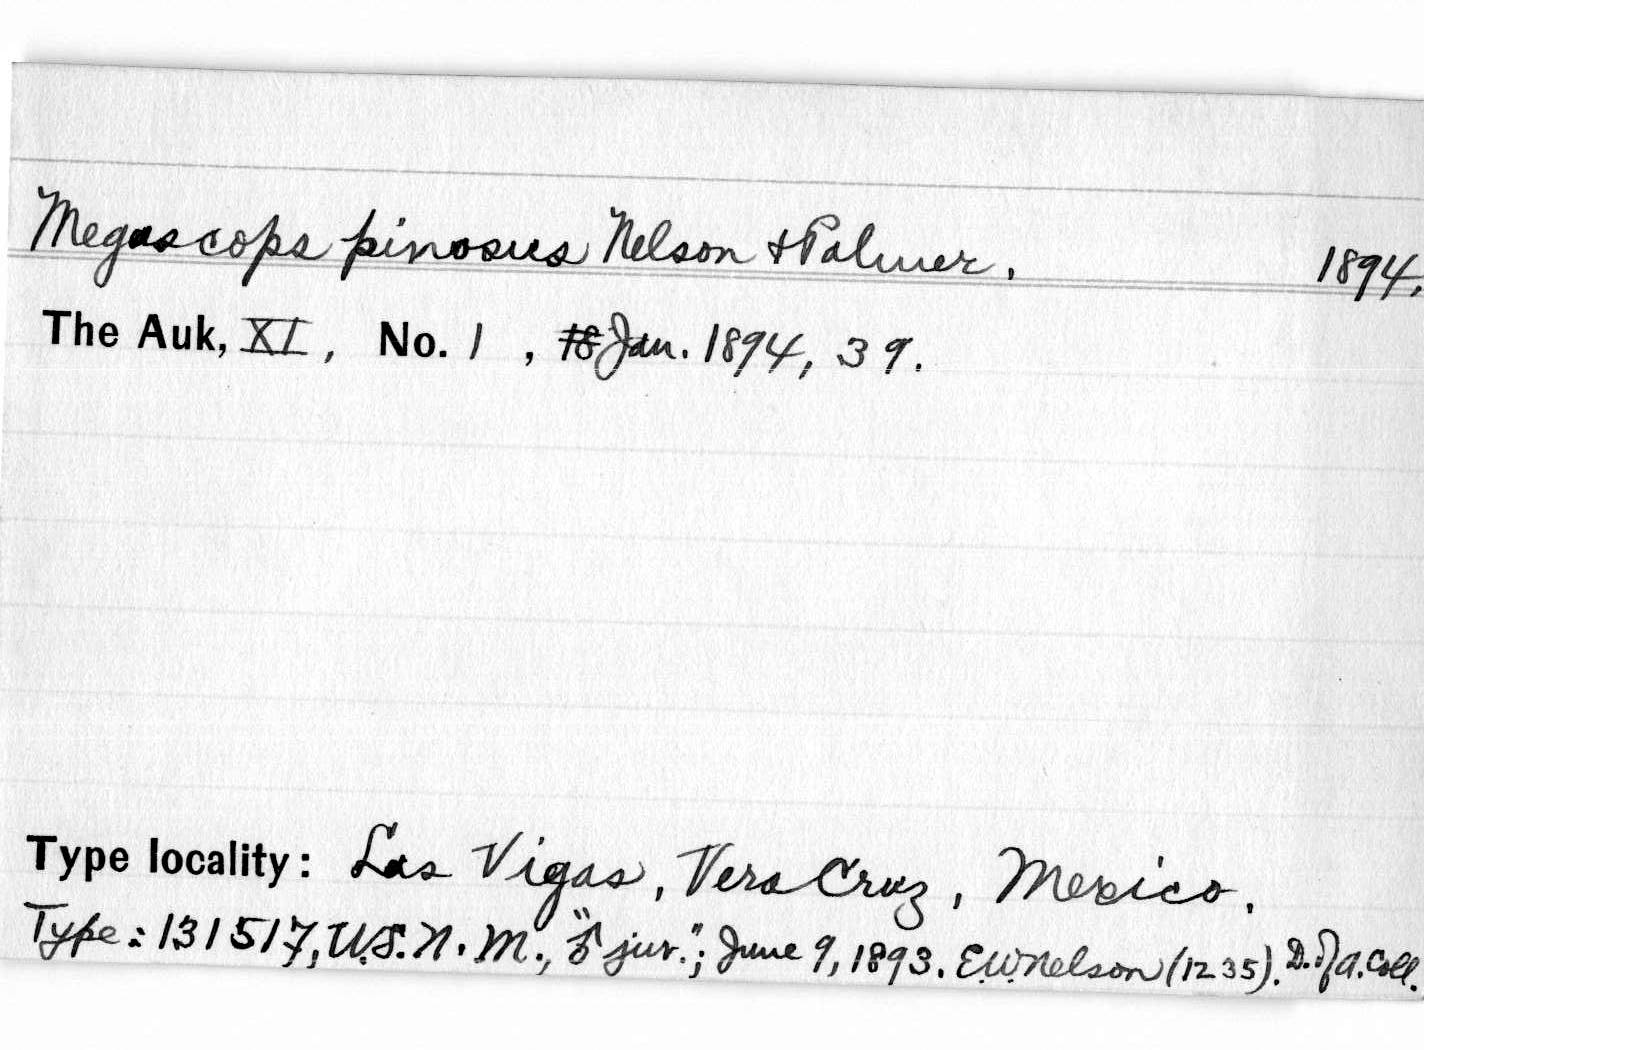 Megascops pinosus Nelson & Palmer. 1894.
The Auk, XI, No. 1, Jan. 1894, 39.
Type locality: Las Vigas, Vera Cruz, Mexico.
Type: 131517, U.S.N.M., "♂ juv."; June 9, 1893. E.W. Nelson (1235). D. of A. Coll.